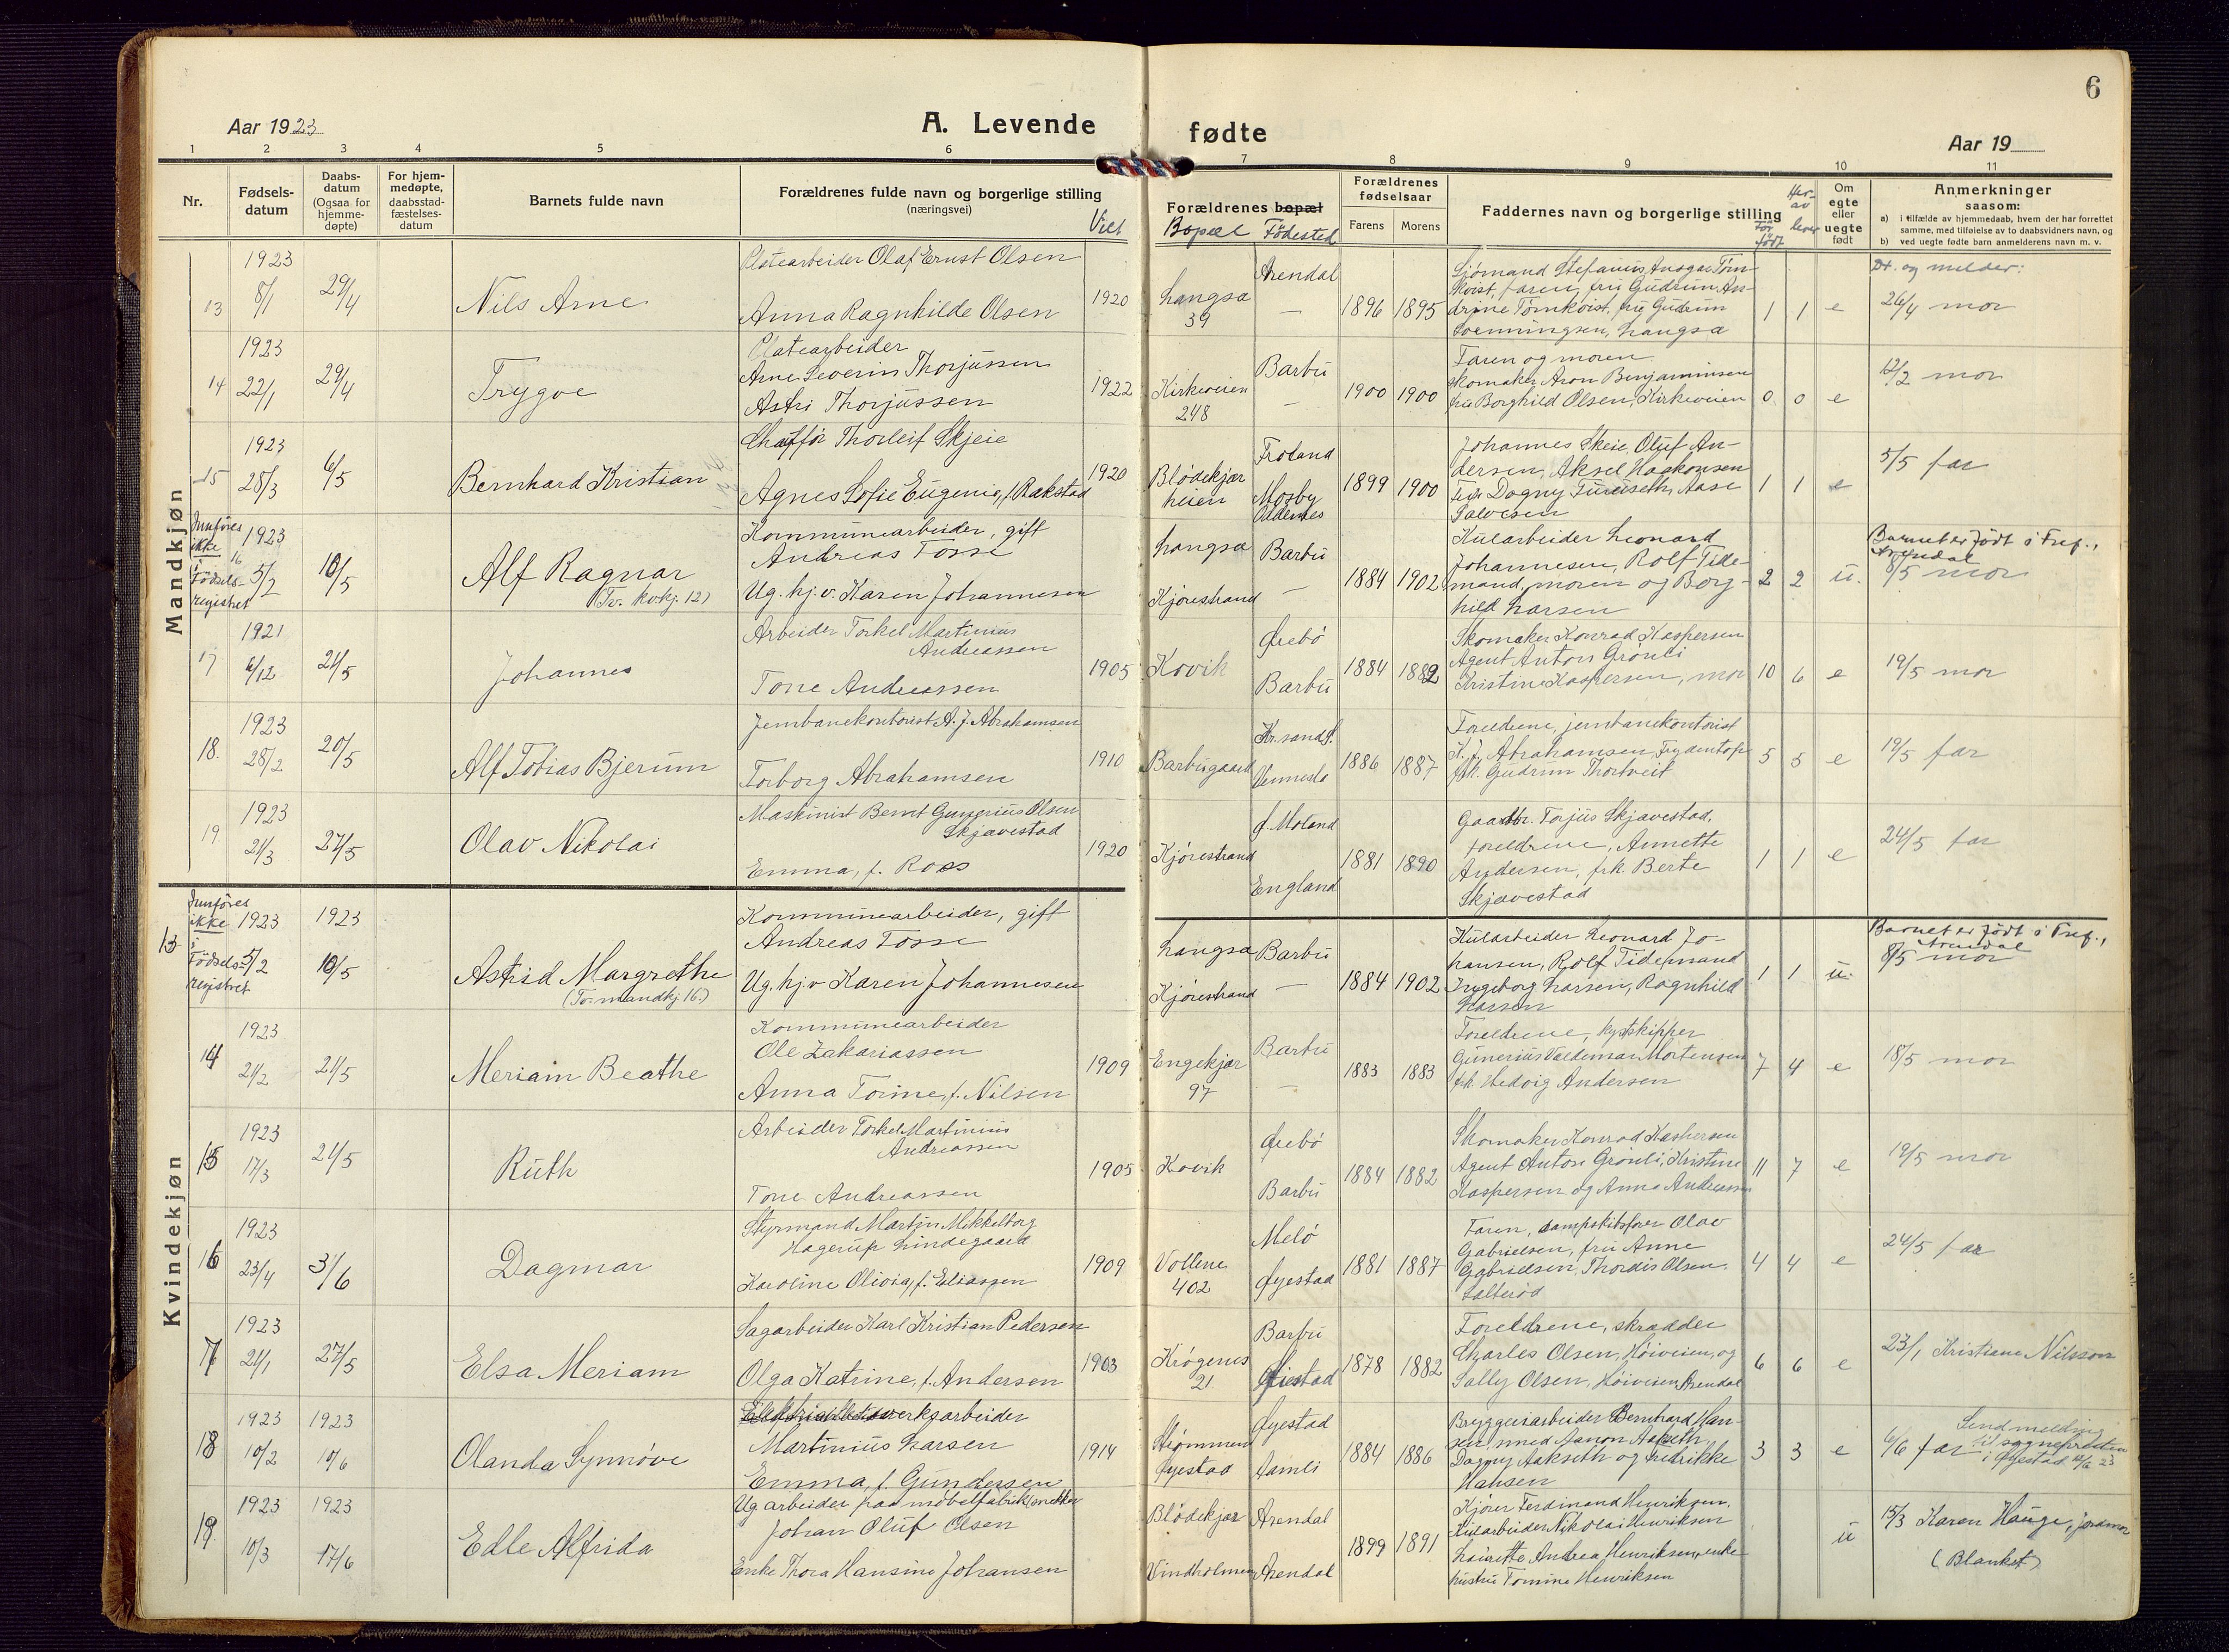 6
Aar 1923
A. Levende
fødte
Aar 19
1 2 3 4 5 6 7 8 9 10 11
Nr.
Fødsels-
datum
Daabs-
datum
(Ogsaa for
hjemme-
døpte)
For hjem-
medøpte,
daabsstad-
fæstelses-
datum
Barnets fulde navn
Forældrenes fulde navn og borgerlige stilling
(næringsvei)
Viet
Forældrenes bopæl
Bopæl Fødested
Forældrenes
fødselsaar
Farens Morens
Faddernes navn og borgerlige stilling
Før
født
Her-
av
lever
Om
egte
eller
uegte
født
Anmerkninger
saasom:
a) i tilfælde av hjemmedaab, hvem der har forrettet
samme, med tilføielse av to daabsvidners navn, og
b) ved uegte fødte barn anmelderens navn m. v.
Mandkjøn
13
1923
8/1
29/4
Nils Arne
Platearbeider Olaf Ernst Olsen
Anna Ragnhilde Olsen
1920
Langsæ
39
Arendal
—
1896 1895
Sjømand Stefanius Ansgar Törn-
koist, faren, fru Gudrun An-
drine Törnkoist, fru Gudrun
Svenningsen, Langsæ
1 1 e
Dt. og melder:
26/4 mor
14
1923
22/1
29/4
Trygve
Platearbeider
Arne Severin Thorjussen
Astri Thorjussen
1922
Kirkeveien
248
Barbu
—
1900 1900
Faren og moren
skomaker Aron Benjaminsen
fru Borghild Olsen, Kirkeveien
0 0 e
12/2 mor
15
1923
28/3
6/5
Bernhard Kristian
Chaffør Thorleif Skjeie
Agnes Sofie Eugenie, f. Rakstad
1920
Blødekjær
heien
Froland
Mosby
Oddernes
1899 1900
Johannes Skeie, Oluf An-
dersen, Aksel Haakonsen
Dagny Tureseth, Aase
Salvesen
1 1 e
5/5 far
Innføres
ikke
16
i
Fødsels-
registret
1923
5/2
10/5
Alf Ragnar
(Tv. kvkj. 12)
Kommunearbeider, gift
Andreas Tosse
Ug. hj. v. Karen Johannesen
Langsæ
Kjørestrand
Barbu
—
1884 1902
Kularbeider Leonard
Johannesen, Rolf Tide-
mand, moren og Borg-
hild Larsen
2 2 u.
Barnet er født i Fref.,
Arendal
8/5 mor
17
1921
6/12
21/5
Johannes
Arbeider Torkel Martinius
Andreassen
Tone Andreassen
1905
Kovik
Øiebø
Barbu
1884 1882
Skomaker Konrad Kaspersen
Agent Anton Grønli
Kristine Kaspersen, mor
10 6 e
19/5 mor
18.
1923
28/2
20/5
Alf Tobias Bjerum
Jernbanekontorist A. J. Abrahamsen
Torborg Abrahamsen
1910
Barbugaard
Kr.sand S.
Vennesla
1886 1887
Foreldrene, jernbanekontorist
K. J. Abrahamsen, Frydentop
frk. Gudrun Thortveit
5 5 e
19/5 far
19
1923
21/3
27/5
Olav Nikolai
Maskinist Bernt Gunerius Olsen
Skjævestad
Emma, f. Ross
1920
Kjørestrand
Ø. Moland
England
1881 1890
Gaardbr. Torjus Skjævestad,
foreldrene, Annette
Andersen, frk. Berte
Skjævestad
1 1 e
24/5 far
Kvindekjøn
Innføres
ikke
13
i
Fødsels-
registret
1923
5/2
1923
10/5
Astrid Margrethe
(Tv. mandkj 16.)
Kommunearbeider, gift
Andreas Tosse
Ug. hj. v Karen Johannesen
Langsæ
Kjørestrand
Barbu
—
1884 1902
Kularbeider Leonard Jo-
hansen, Rolf Tidemand
Ingeborg Larsen, Ragnhild
Larsen
1 1 u.
Barnet er født i Fref.,
Arendal
8/5 mor
14
1923
21/2
21/5
Meriam Beathe
Kommunearbeider
Ole Zakariassen
Anna Tomine, f. Nilsen
1909
Engekjær
97
Barbu
—
1883 1883
Foreldrene, kystskipper
Gunerius Valdemar Mortensen
frk. Hedvig Andersen
7 4 e
18/5 mor
15
1923
17/3
21/5
Ruth
Arbeider Torkel Martinius
Andreassen
Tone Andreassen
1905
Kovik
Øiebø
Barbu
1884 1882
Skomaker Konrad Kaspersen
Agent Anton Grønli, Kristine
Kaspersen og Anna Andreassen
11 7 e
19/5 mor
16
1923
23/4
3/6
Dagmar
Styrmand Martin Mikkelborg
Hagerup Lindegaard
Karoline Olivia, f. Eliassen
1909
Vollene
402
Melø
Øyestad
1881 1887
Faren, dampskibsfører Olav
Gabrielsen, fru Anne
Gabrielsen, Thordis Olsen,
Salterød
4 4 e
24/5 far
17
1923
21/1
27/5
Elsa Meriam
Sagarbeider Karl Kristian Pedersen
Olga Katrine, f. Andersen
1903
Krøgenes
21
Barbu
Øiestad
1878 1882
Foreldrene, skrædder
Charles Olsen, Høiveien, og
Sally Olsen, Høiveien, Arendal
6 6 e
23/1 Kristiane Nilsson
18
1923
10/2
1923
10/6
Olanda Synnøve
Elektricitetsverksarbeider
Martinius Larsen
Emma, f. Gundersen
1914
Strømmen
Øyestad
Øyestad
Aamli
1884 1886
Bryggeriarbeider Bernhard Han-
sen, Aakseth,
Dagny Aakseth og Fredrikke
Hansen
3 3 e
6/6 far
Send melding
til sogneprasten
i Øyestad 14/6 23
19.
1923
10/3
1923
17/6
Edle Alfrida
Ug arbeider paa møbelfabrik snekker
Johan Oluf Olsen
Enke Thora Hansine Johansen
Blødekjær
Vindholmen
Arendal
Arendal
1899 1891
Kjører Ferdinand Henriksen,
Kularbeider Nikolai Henriksen
Laurette Andrea Henriksen, enke
hustru Tomine Henriksen
u
15/3 Karen Hauge, jordmor
(Blanket)